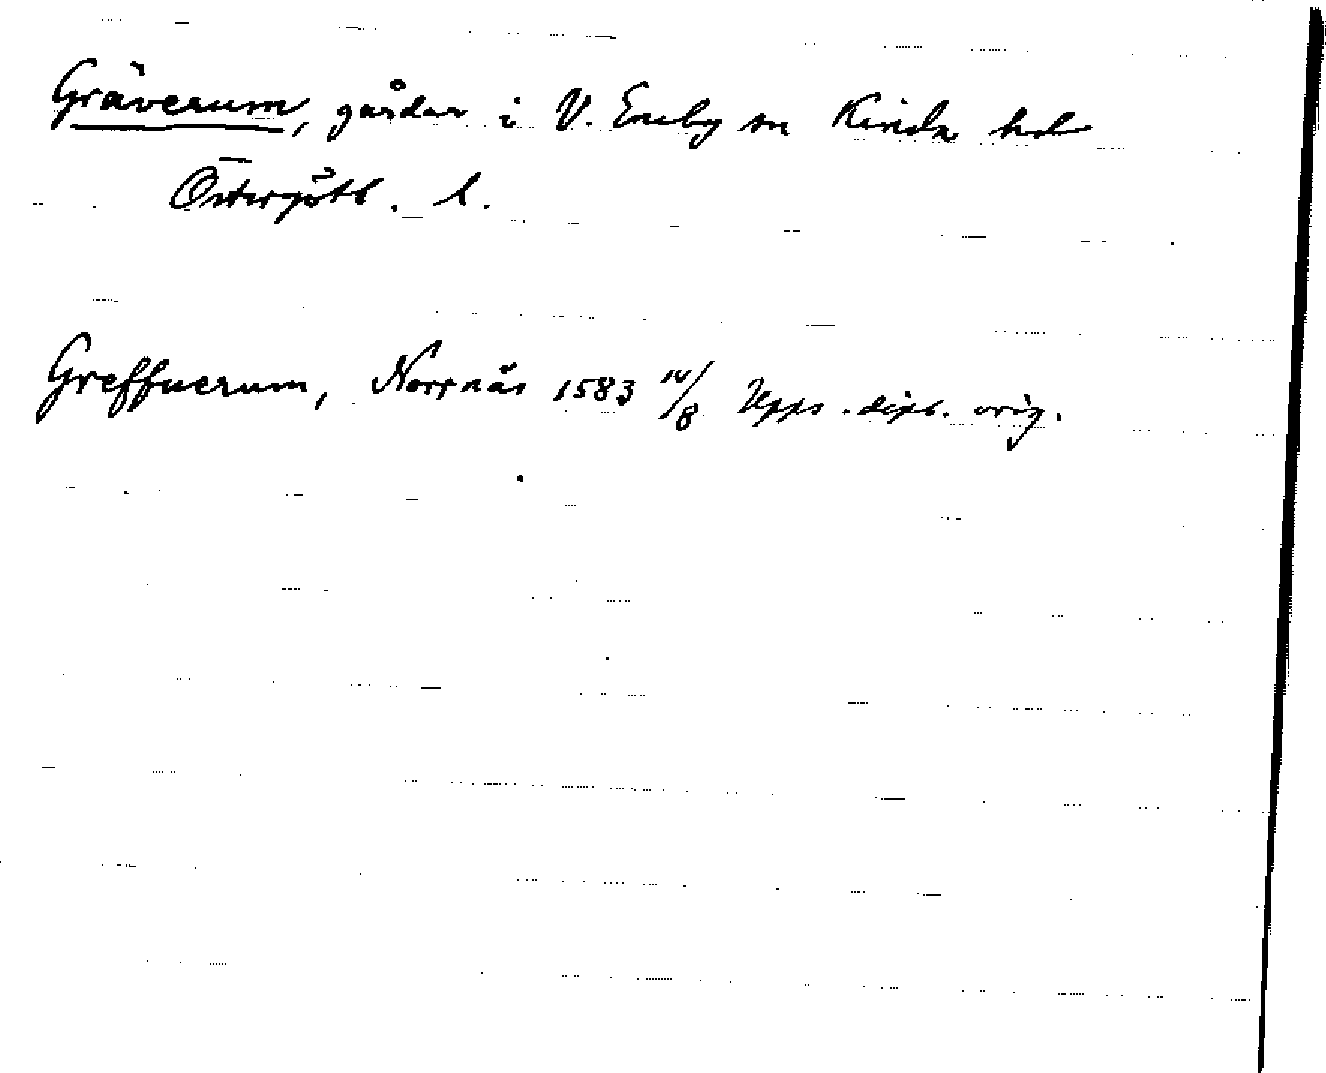 Gräverum, gårdar i V. Eneby sn Kinda hd
Östergötl. l.
Greffuerum, Norrnäs 1583 /8 Upps. dipl. orig.